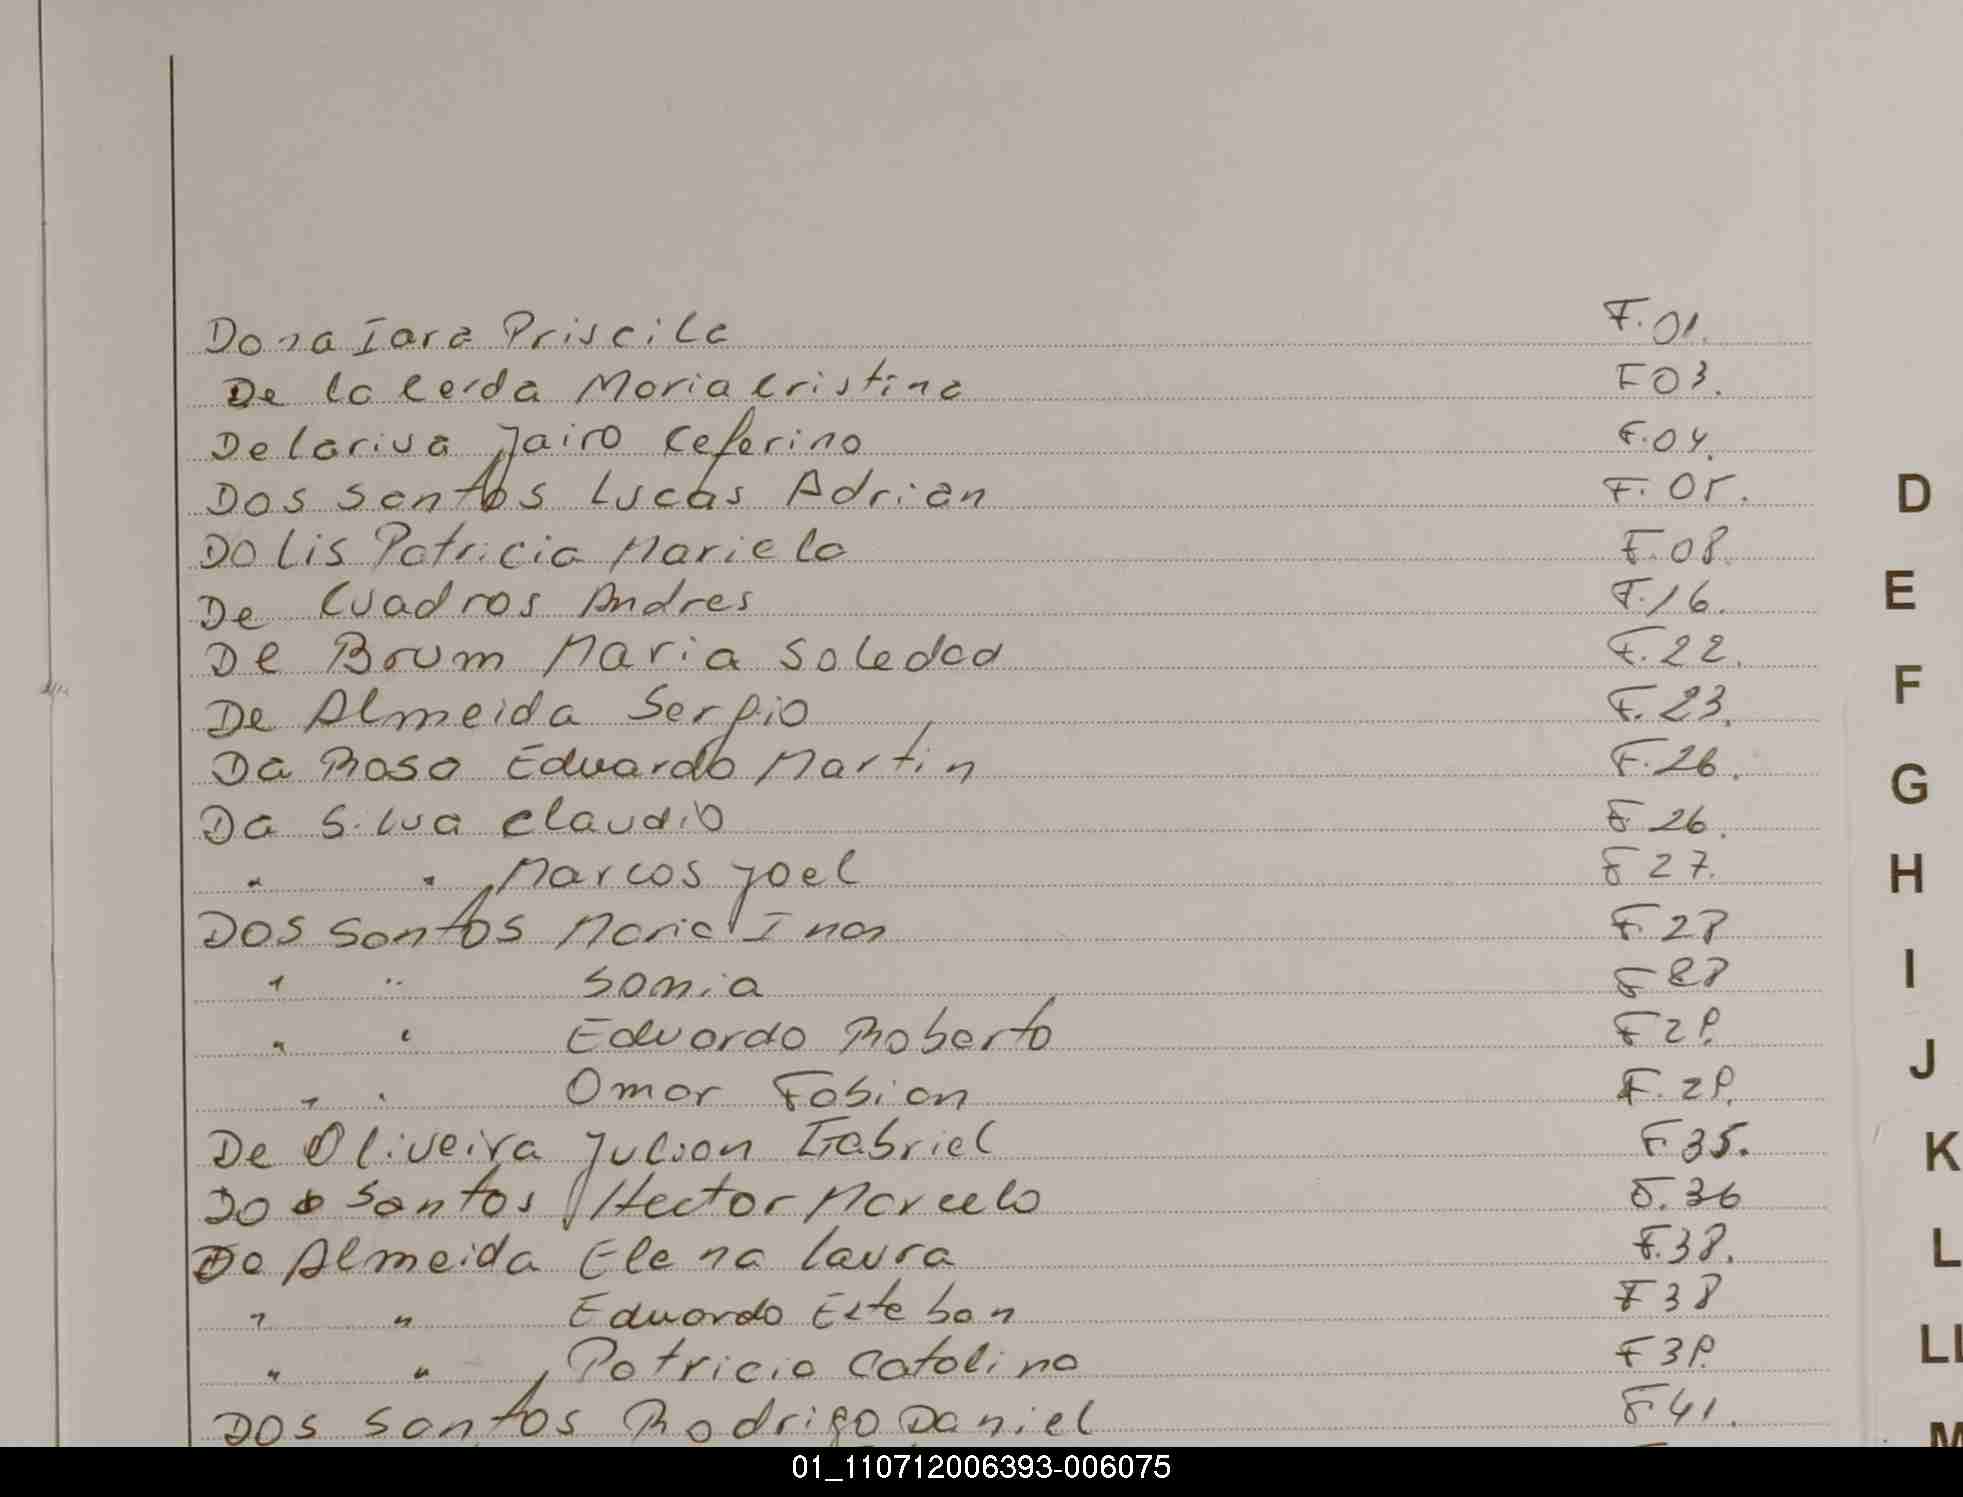 Dona Iara Priscila F.01.
De la Cerda Maria Cristina F03.
Delariva Jairo Ceferino F.04.
Dos Santos Lucas Adrian F.05.
Dolis Patricia Mariela F.08.
De Cuadros Andres F.16.
De Brum Maria Soledad F.22.
De Almeida Sergio F.23.
Da Rosa Eduardo Martin F.26.
Da Silva Claudio F 26.
" " Marcos Joel F 27.
Dos Santos Maria F 28
" " Sonia F 28
" " Eduardo Roberto F 29.
" " Omar Fabian F. 29.
De Oliveira Julian Gabriel F 35.
Dos Santos Hector Marcelo F. 36
De Almeida Elena Laura F.38.
" " Eduardo Esteban F 38
" " Patricia Catalina F 39.
Dos Santos Rodrigo Daniel F 41.
D
E
F
G
H
I
J
K
L
LL
M
01_110712006393-006075